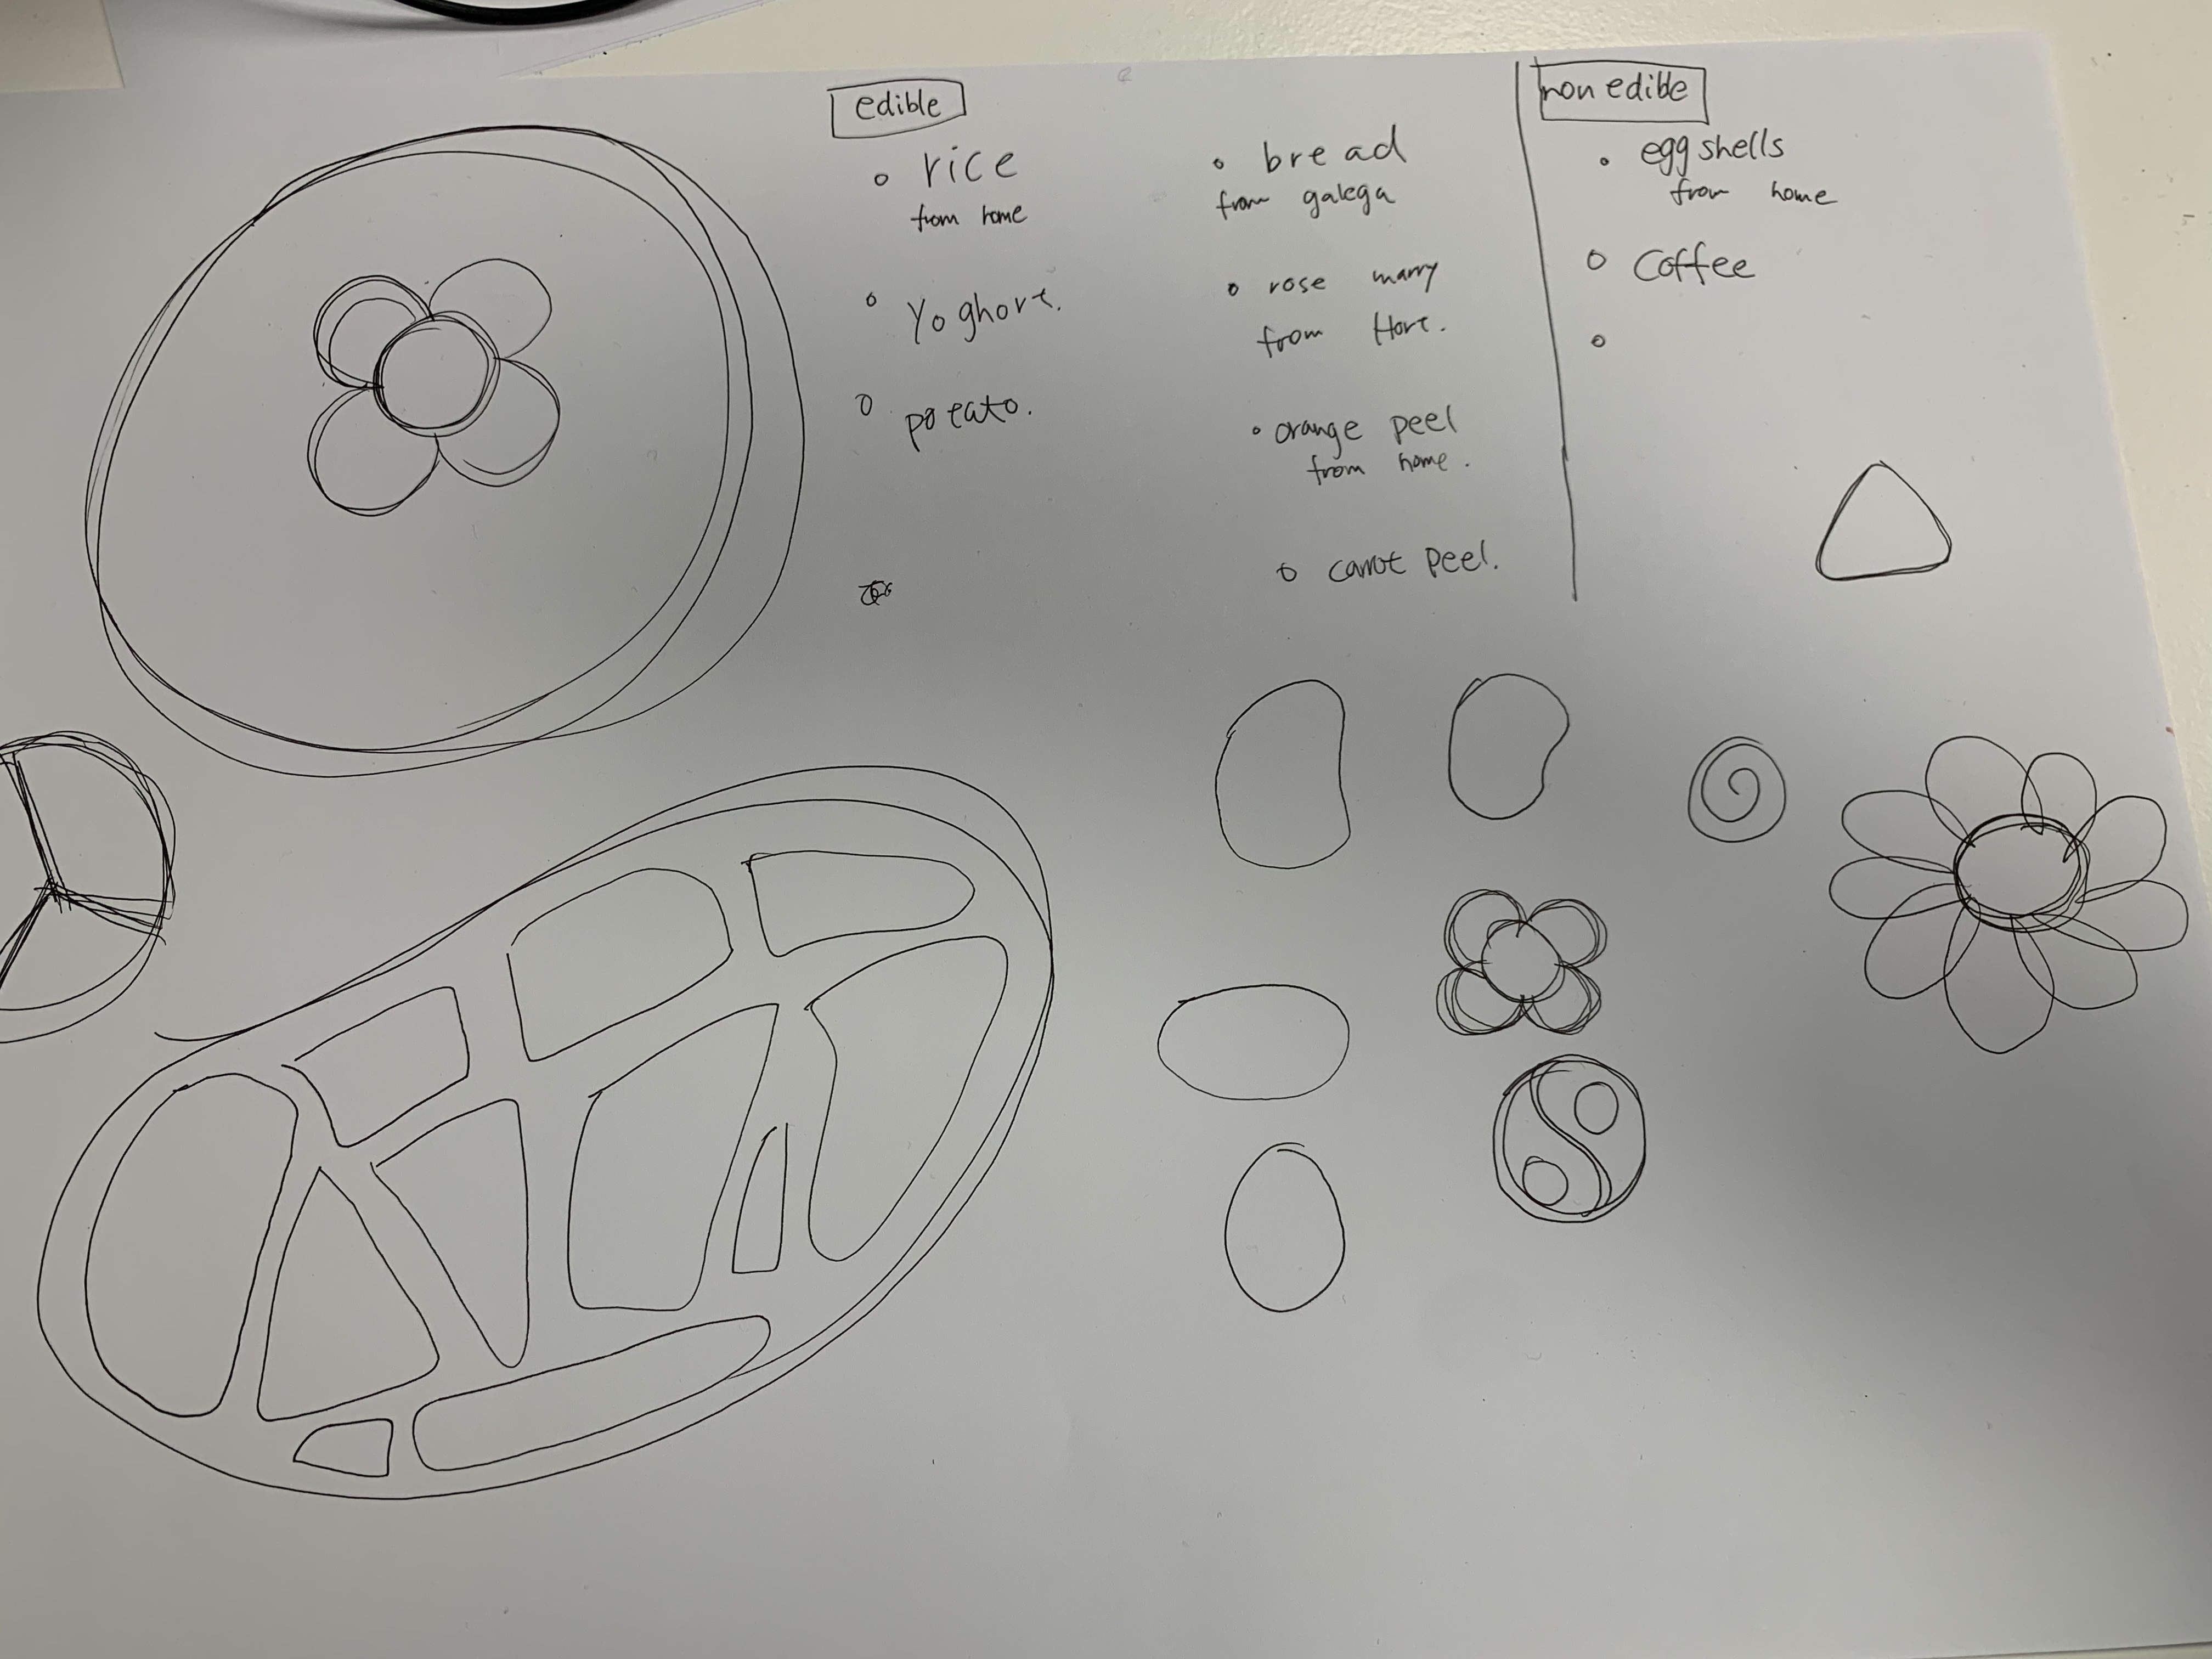 edible
rice
from home
Yoghort.
potato.
bread
from galega
rose marry
from Hort.
orange peel
from home.
carrot peel.
non edible
egg shells
from home
Coffee